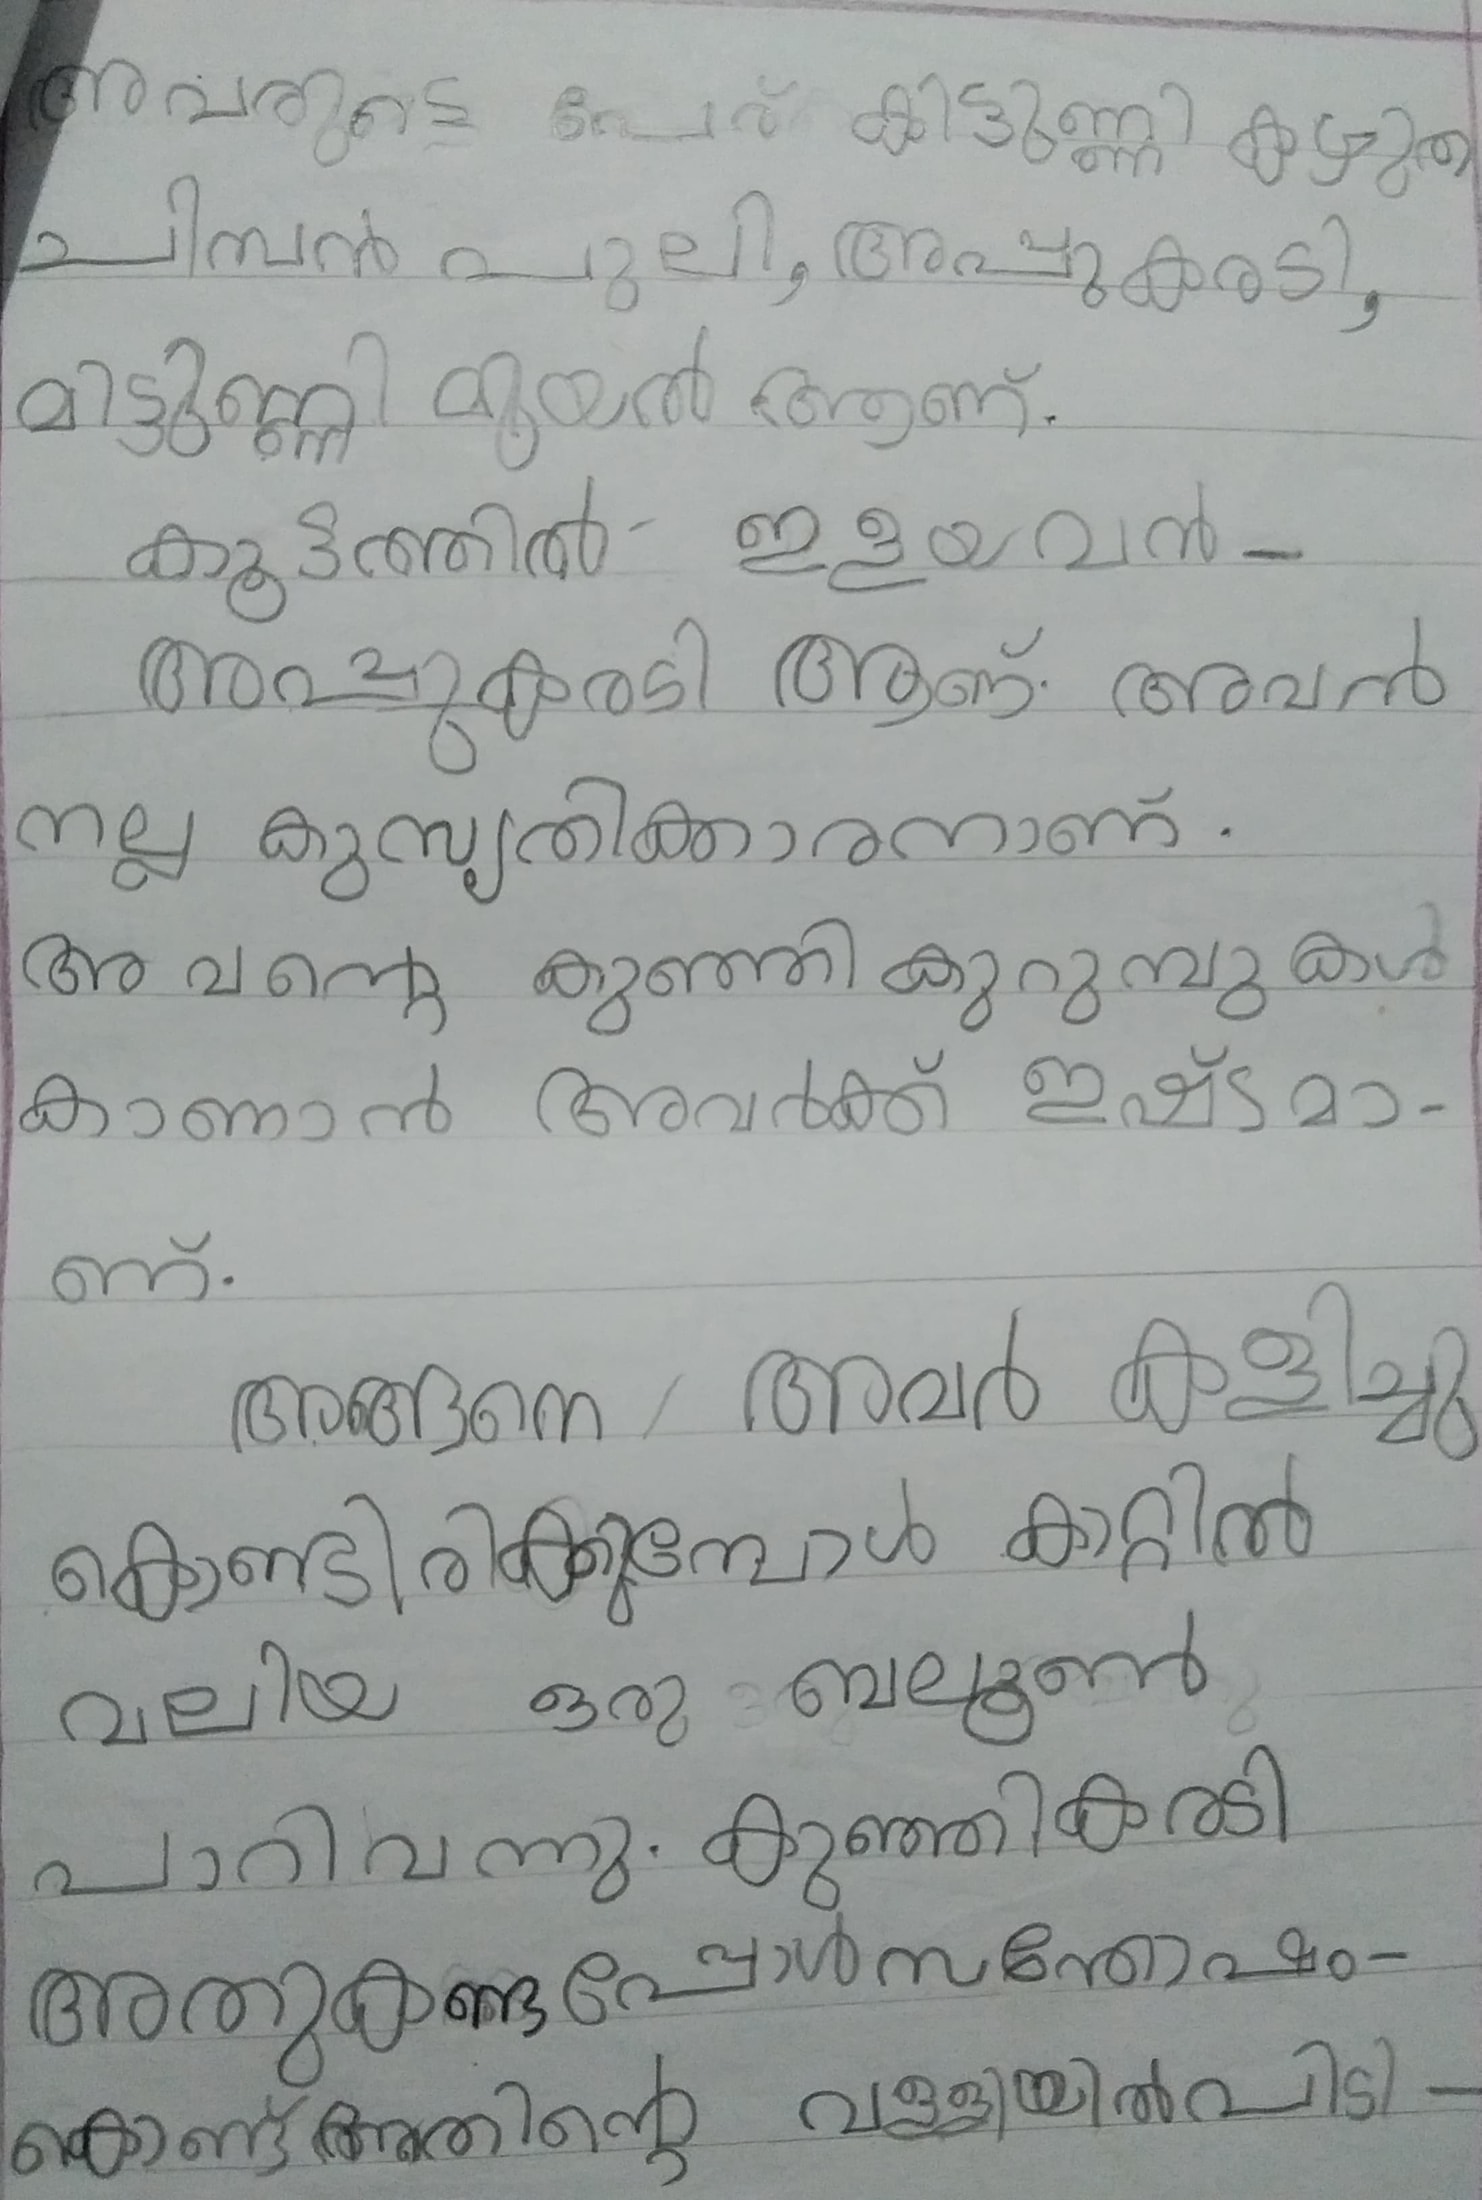 അവരുടെ പേര് കിട്ടുണ്ണി കഴുത
ചിമ്പൻ പുലി, അപ്പുകരടി,
മിട്ടുണ്ണി മുയൽ ആണ്.
കൂട്ടത്തിൽ- ഇളയവൻ -
അപ്പുകരടി ആണ്. അവൻ
നല്ല കുസൃതിക്കാരനാണ്.
അവന്റെ കുഞ്ഞികുറുമ്പുകൾ
കാണാൻ അവർക്ക് ഇഷ്ടമാ-
ണ്.
അങ്ങനെ / അവർ കളിച്ചു
കൊണ്ടിരിക്കുമ്പോൾ കാറ്റിൽ
വലിയ ഒരു ബലൂൺ
പാറി വന്നു. കുഞ്ഞികരടി
അതുകണ്ടപ്പോൾ സന്തോഷം-
കൊണ്ട് അതിന്റെ വള്ളിയിൽ പിടി-